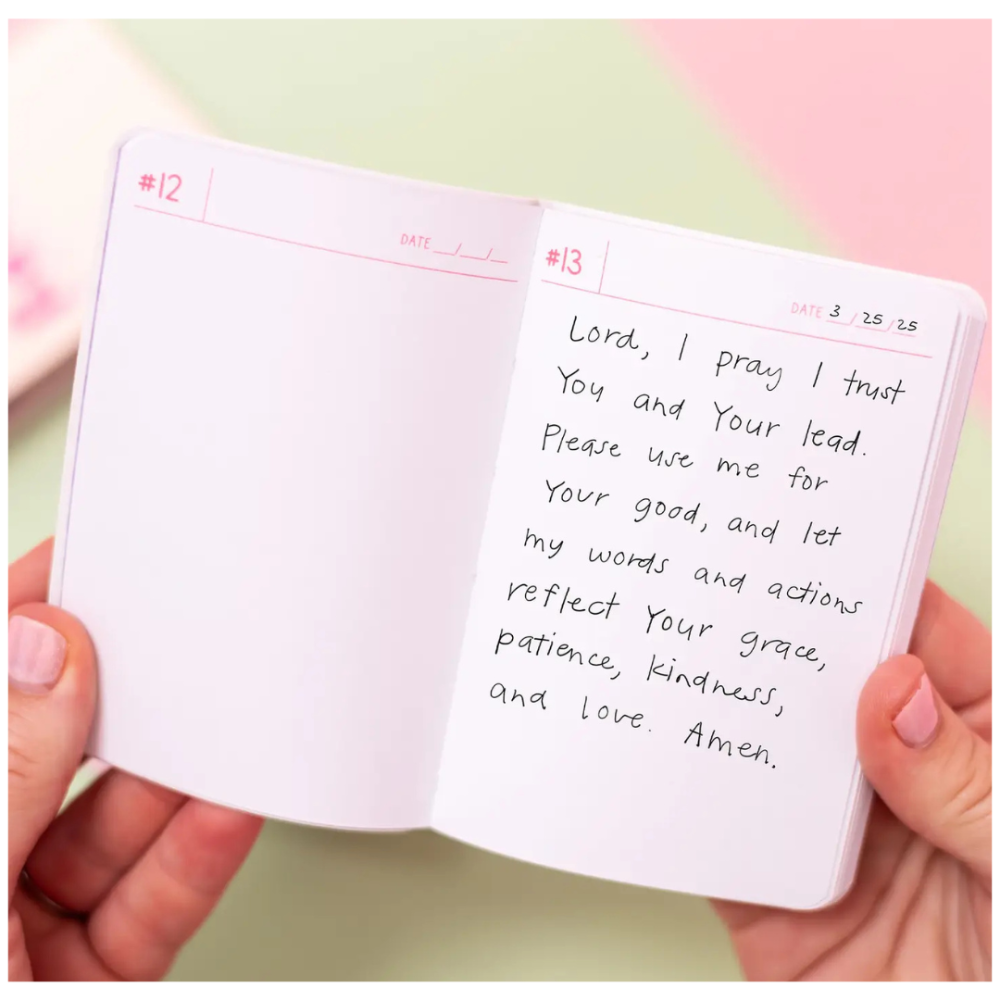 #12
DATE __/__/__
#13
DATE 3 / 25 / 25
Lord, I pray I trust
You and Your lead.
Please use me for
Your good, and let
my words and actions
reflect Your grace,
patience, kindness,
and love. Amen.